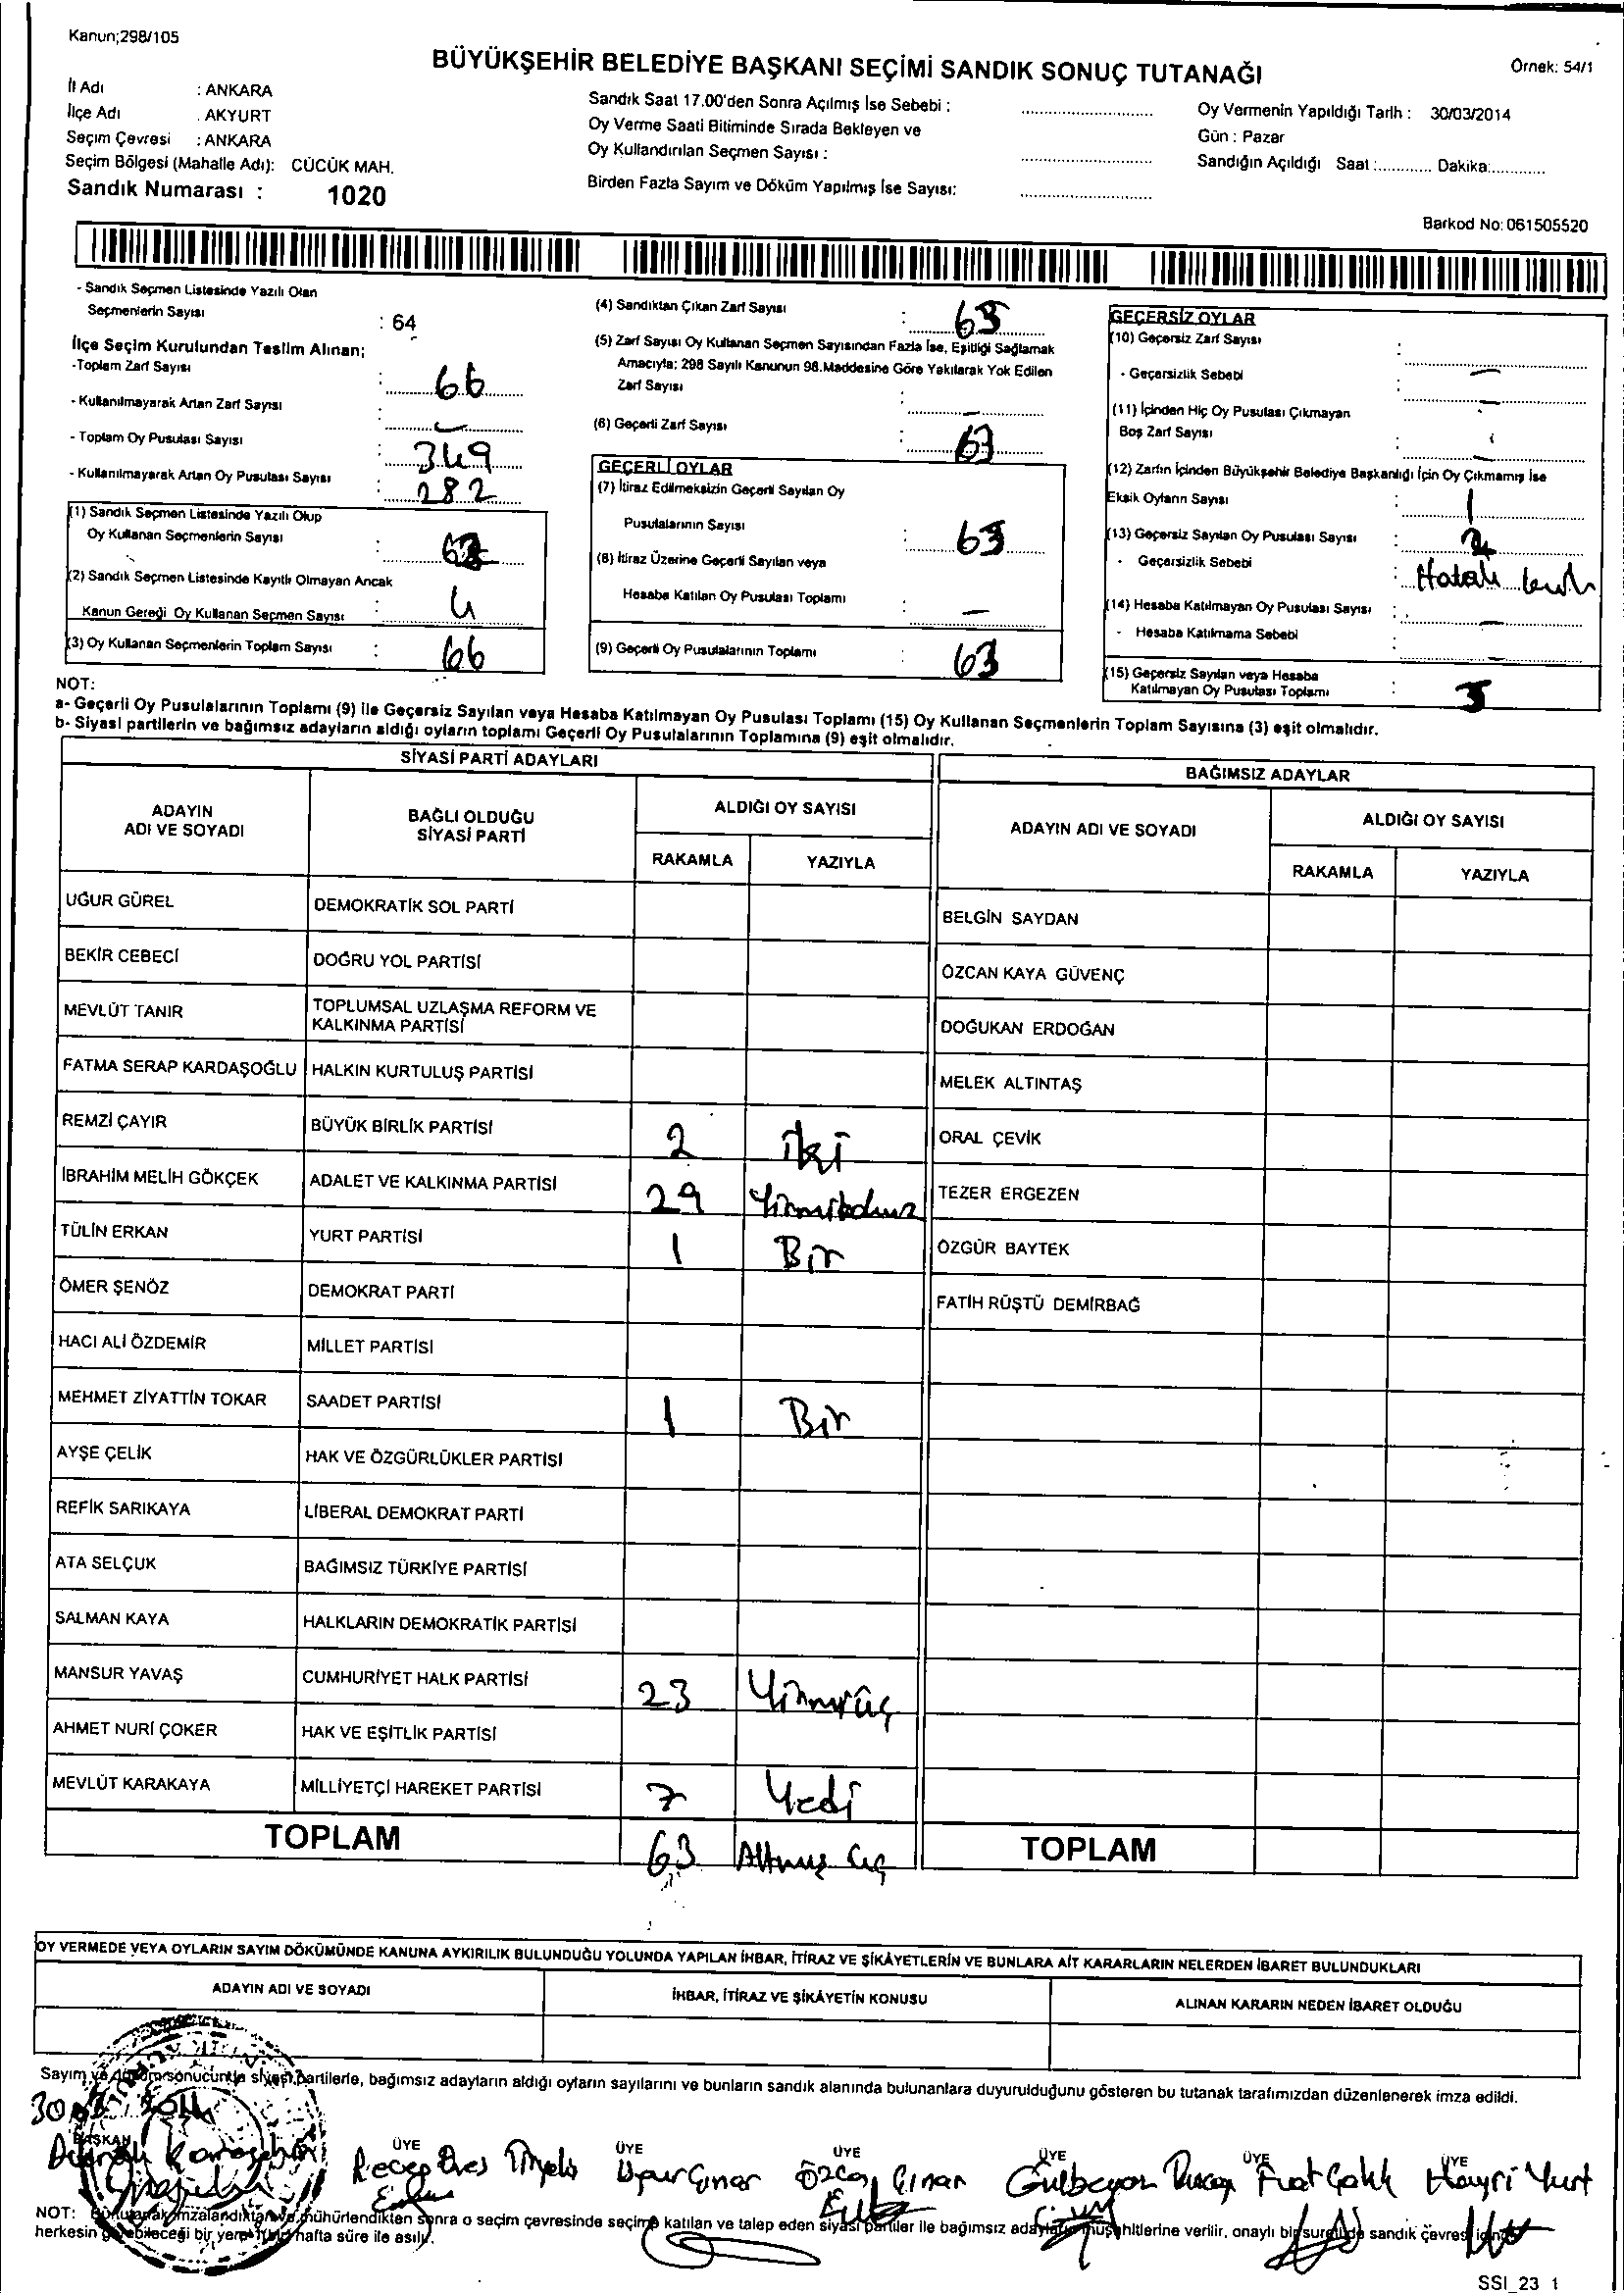 Kanun;298/105
BÜYÜKŞEHİR BELEDİYE BAŞKANI SEÇİMİ SANDIK SONUÇ TUTANAĞI
Örnek: 54/1
İl Adı : ANKARA
İlçe Adı . AKYURT
Seçim Çevresi : ANKARA
Seçim Bölgesi (Mahalle Adı): CÜCÜK MAH.
Sandık Numarası : 1020
Sandık Saat 17.00'den Sonra Açılmış İse Sebebi :
Oy Verme Saati Bitiminde Sırada Bekleyen ve
Oy Kullandırılan Seçmen Sayısı :
Birden Fazla Sayım ve Döküm Yapılmış İse Sayısı:
Oy Vermenin Yapıldığı Tarih : 30/03/2014
Gün : Pazar
Sandığın Açıldığı Saat :............. Dakika:.............
Barkod No: 061505520
- Sandık Seçmen Listesinde Yazılı Olan
Seçmenlerin Sayısı : 64
İlçe Seçim Kurulundan Teslim Alınan;
-Toplam Zarf Sayısı : 66
- Kullanılmayarak Artan Zarf Sayısı : -
- Toplam Oy Pusulası Sayısı : 349
- Kullanılmayarak Artan Oy Pusulası Sayısı : 282
(1) Sandık Seçmen Listesinde Yazılı Olup
Oy Kullanan Seçmenlerin Sayısı :
(2) Sandık Seçmen Listesinde Kayıtlı Olmayan Ancak
Kanun Gereği Oy Kullanan Seçmen Sayısı : 4
(3) Oy Kullanan Seçmenlerin Toplam Sayısı : 66
(4) Sandıktan Çıkan Zarf Sayısı :
(5) Zarf Sayısı Oy Kullanan Seçmen Sayısından Fazla İse, Eşitliği Sağlamak
Amacıyla; 298 Sayılı Kanunun 98.Maddesine Göre Yakılarak Yok Edilen
Zarf Sayısı : -
(6) Geçerli Zarf Sayısı : 63
GEÇERLİ OYLAR
(7) İtiraz Edilmeksizin Geçerli Sayılan Oy
Pusulalarının Sayısı : 63
(8) İtiraz Üzerine Geçerli Sayılan veya
Hesaba Katılan Oy Pusulası Toplamı : -
(9) Geçerli Oy Pusulalarının Toplamı : 63
GEÇERSİZ OYLAR
(10) Geçersiz Zarf Sayısı : -
- Geçersizlik Sebebi : -
(11) İçinden Hiç Oy Pusulası Çıkmayan
Boş Zarf Sayısı : -
(12) Zarfın İçinden Büyükşehir Belediye Başkanlığı İçin Oy Çıkmamış İse
Eksik Oyların Sayısı : 1
(13) Geçersiz Sayılan Oy Pusulası Sayısı : 2
- Geçersizlik Sebebi : Hatalı
(14) Hesaba Katılmayan Oy Pusulası Sayısı : -
- Hesaba Katılmama Sebebi : -
(15) Geçersiz Sayılan veya Hesaba
Katılmayan Oy Pusulası Toplamı : 3
NOT:
a- Geçerli Oy Pusulalarının Toplamı (9) ile Geçersiz Sayılan veya Hesaba Katılmayan Oy Pusulası Toplamı (15) Oy Kullanan Seçmenlerin Toplam Sayısına (3) eşit olmalıdır.
b- Siyasi partilerin ve bağımsız adayların aldığı oyların toplamı Geçerli Oy Pusulalarının Toplamına (9) eşit olmalıdır.
SİYASİ PARTİ ADAYLARI
ADAYIN ADI VE SOYADI BAĞLI OLDUĞU SİYASİ PARTİ ALDIĞI OY SAYISI
RAKAMLA YAZIYLA
UĞUR GÜREL DEMOKRATİK SOL PARTİ
BEKİR CEBECİ DOĞRU YOL PARTİSİ
MEVLÜT TANIR TOPLUMSAL UZLAŞMA REFORM VE KALKINMA PARTİSİ
FATMA SERAP KARDAŞOĞLU HALKIN KURTULUŞ PARTİSİ
REMZİ ÇAYIR BÜYÜK BİRLİK PARTİSİ 2 iki
İBRAHİM MELİH GÖKÇEK ADALET VE KALKINMA PARTİSİ 29 Yirmidokuz
TÜLİN ERKAN YURT PARTİSİ 1 Bir
ÖMER ŞENÖZ DEMOKRAT PARTİ
HACI ALİ ÖZDEMİR MİLLET PARTİSİ
MEHMET ZİYATTİN TOKAR SAADET PARTİSİ 1 Bir
AYŞE ÇELİK HAK VE ÖZGÜRLÜKLER PARTİSİ
REFİK SARIKAYA LİBERAL DEMOKRAT PARTİ
ATA SELÇUK BAĞIMSIZ TÜRKİYE PARTİSİ
SALMAN KAYA HALKLARIN DEMOKRATİK PARTİSİ
MANSUR YAVAŞ CUMHURİYET HALK PARTİSİ 23 Yirmiüç
AHMET NURİ ÇOKER HAK VE EŞİTLİK PARTİSİ
MEVLÜT KARAKAYA MİLLİYETÇİ HAREKET PARTİSİ 7 Yedi
TOPLAM 63 Altmış üç
BAĞIMSIZ ADAYLAR
ADAYIN ADI VE SOYADI ALDIĞI OY SAYISI
RAKAMLA YAZIYLA
BELGİN SAYDAN
ÖZCAN KAYA GÜVENÇ
DOĞUKAN ERDOĞAN
MELEK ALTINTAŞ
ORAL ÇEVİK
TEZER ERGEZEN
ÖZGÜR BAYTEK
FATİH RÜŞTÜ DEMİRBAĞ
TOPLAM
OY VERMEDE VEYA OYLARIN SAYIM DÖKÜMÜNDE KANUNA AYKIRILIK BULUNDUĞU YOLUNDA YAPILAN İHBAR, İTİRAZ VE ŞİKÂYETLERİN VE BUNLARA AİT KARARLARIN NELERDEN İBARET BULUNDUKLARI
ADAYIN ADI VE SOYADI İHBAR, İTİRAZ VE ŞİKÂYETİN KONUSU ALINAN KARARIN NEDEN İBARET OLDUĞU
Sayım ve döküm sonucunda siyasi partilerle, bağımsız adayların aldığı oyların sayılarını ve bunların sandık alanında bulunanlara duyurulduğunu gösteren bu tutanak tarafımızdan düzenlenerek imza edildi.
BAŞKAN ÜYE ÜYE ÜYE ÜYE ÜYE ÜYE
Recep Uğur Çınar Özcan Çınar Fuat Çelik Hayri Yurt
NOT: Bu tutanak imzalandıktan ve mühürlendikten sonra o seçim çevresinde seçime katılan ve talep eden siyasi partiler ile bağımsız adayların müşahitlerine verilir, onaylı bir sureti de sandık çevresi içinde
herkesin görebileceği bir yere 1 bir hafta süre ile asılır.
SSI_23 1